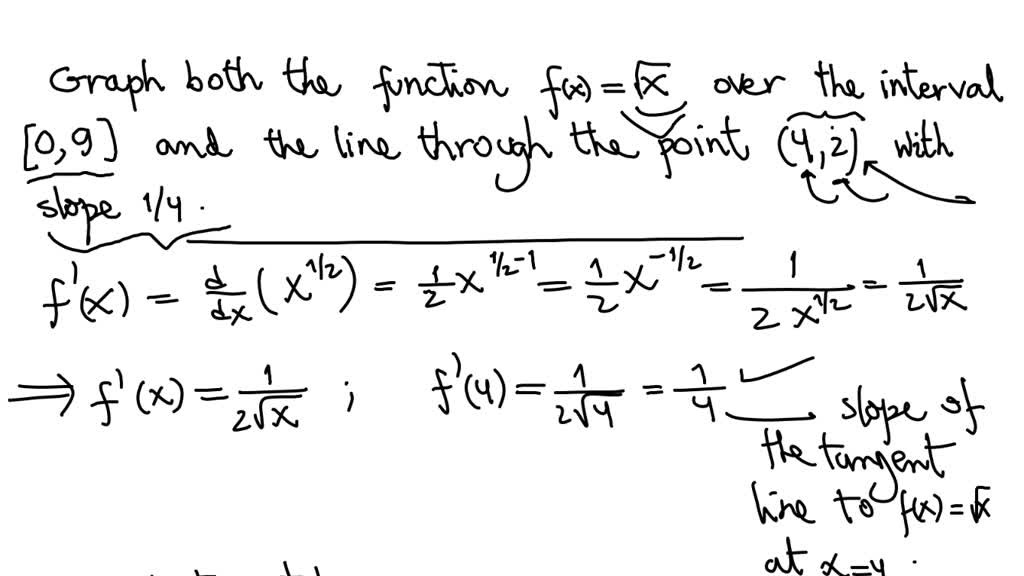 Graph both the function f(x) = √x over the interval
[0,9] and the line through the point (4,2) with
slope 1/4.
f'(x) = d/dx (x^1/2) = 1/2 x^1/2-1 = 1/2 x^-1/2 = 1/(2 x^1/2) = 1/(2√x)
⟹ f'(x) = 1/(2√x) ; f'(4) = 1/(2√4) = 1/4
slope of
the tangent
line to f(x) = √x
at x=4.